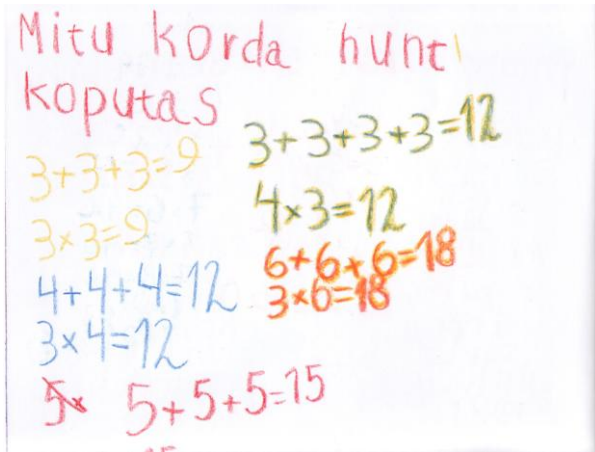 Mitu korda hunt
koputas
3+3+3=9
3×3=9
4+4+4=12
3×4=12
5× 5+5+5=15
3+3+3+3=12
4×3=12
6+6+6=18
3×6=18